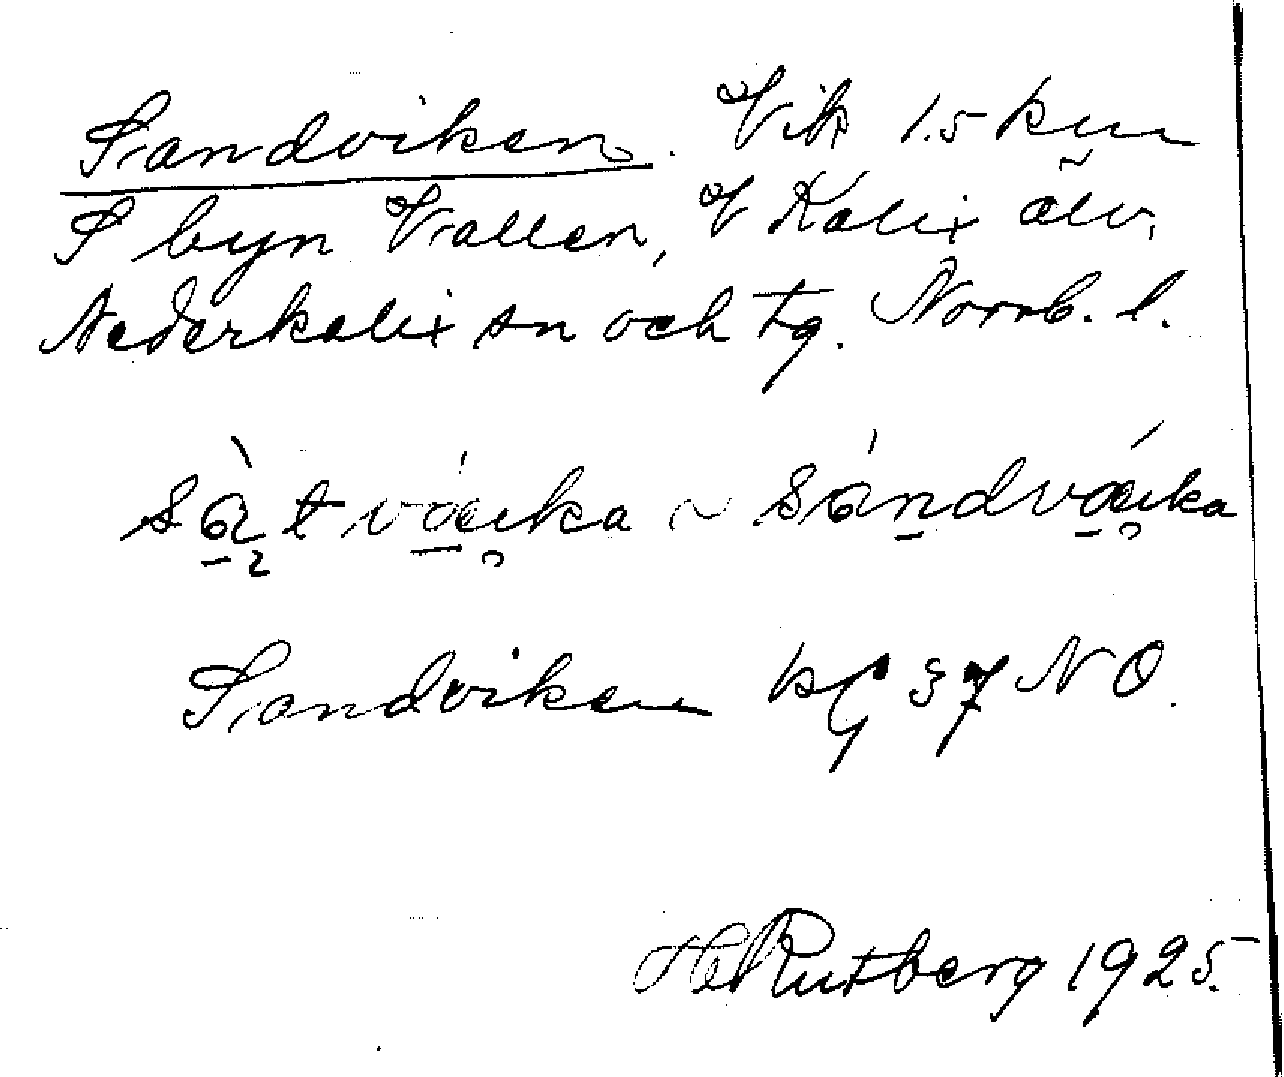 Sandviken. Vik 1.5 km
S byn Vallen, V Kalix älv,
Nederkalix sn och tg. Norrb. l.
sàt váika ~ sándváika
Sandviken 37 NO.
H Rutberg 1925.